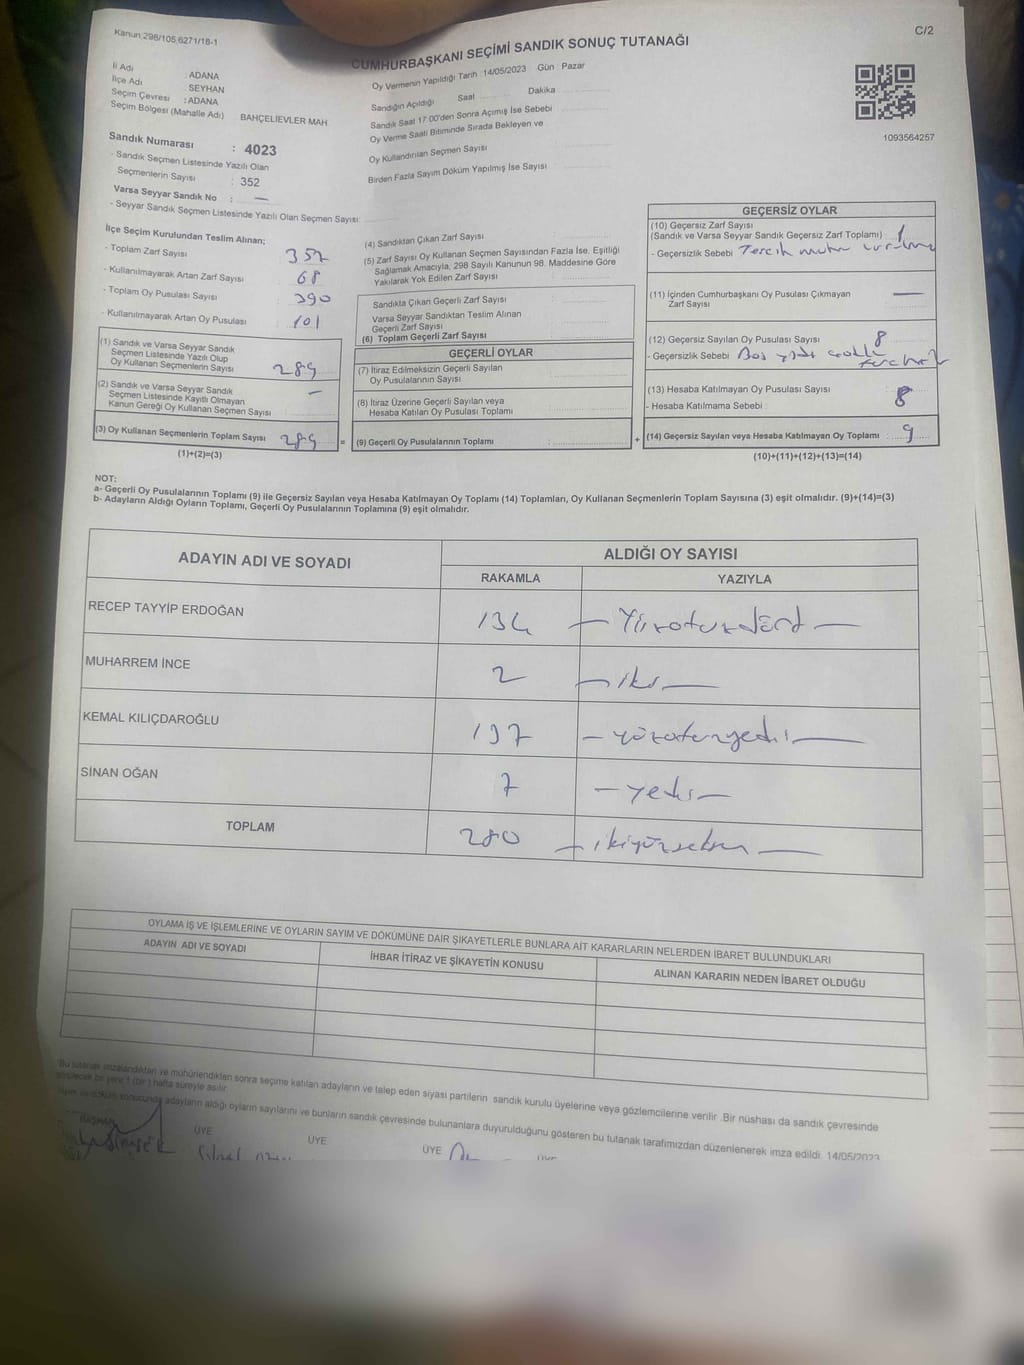 Kanun:298/105,6271/18-1
C/2
CUMHURBAŞKANI SEÇİMİ SANDIK SONUÇ TUTANAĞI
İl Adı : ADANA
İlçe Adı : SEYHAN
Seçim Çevresi : ADANA
Seçim Bölgesi (Mahalle Adı) BAHÇELİEVLER MAH
Sandık Numarası : 4023
- Sandık Seçmen Listesinde Yazılı Olan
Seçmenlerin Sayısı : 352
Varsa Seyyar Sandık No : —
- Seyyar Sandık Seçmen Listesinde Yazılı Olan Seçmen Sayısı:
Oy Vermenin Yapıldığı Tarih :14/05/2023 Gün : Pazar
Sandığın Açıldığı Saat Dakika
Sandık Saat 17:00'den Sonra Açımış İse Sebebi
Oy Verme Saati Bitiminde Sırada Bekleyen ve
Oy Kullandırılan Seçmen Sayısı
Birden Fazla Sayım Döküm Yapılmış İse Sayısı
1093564257
İlçe Seçim Kurulundan Teslim Alınan;
- Toplam Zarf Sayısı : 357
- Kullanılmayarak Artan Zarf Sayısı : 68
- Toplam Oy Pusulası Sayısı : 390
- Kullanılmayarak Artan Oy Pusulası : 101
(1) Sandık ve Varsa Seyyar Sandık
Seçmen Listesinde Yazılı Olup
Oy Kullanan Seçmenlerin Sayısı 289
(2) Sandık ve Varsa Seyyar Sandık
Seçmen Listesinde Kayıtlı Olmayan
Kanun Gereği Oy Kullanan Seçmen Sayısı —
(3) Oy Kullanan Seçmenlerin Toplam Sayısı 289 =
(1)+(2)=(3)
(4) Sandıktan Çıkan Zarf Sayısı
(5) Zarf Sayısı Oy Kullanan Seçmen Sayısından Fazla İse, Eşitliği
Sağlamak Amacıyla, 298 Sayılı Kanunun 98. Maddesine Göre
Yakılarak Yok Edilen Zarf Sayısı
Sandıkta Çıkan Geçerli Zarf Sayısı
Varsa Seyyar Sandıktan Teslim Alınan
Geçerli Zarf Sayısı
(6) Toplam Geçerli Zarf Sayısı
GEÇERLİ OYLAR
(7) İtiraz Edilmeksizin Geçerli Sayılan
Oy Pusulalarının Sayısı
(8) İtiraz Üzerine Geçerli Sayılan veya
Hesaba Katılan Oy Pusulası Toplamı
(9) Geçerli Oy Pusulalarının Toplamı : +
GEÇERSİZ OYLAR
(10) Geçersiz Zarf Sayısı
(Sandık ve Varsa Seyyar Sandık Geçersiz Zarf Toplamı) : 1
- Geçersizlik Sebebi Tercih
(11) İçinden Cumhurbaşkanı Oy Pusulası Çıkmayan
Zarf Sayısı —
(12) Geçersiz Sayılan Oy Pusulası Sayısı 8
- Geçersizlik Sebebi
(13) Hesaba Katılmayan Oy Pusulası Sayısı
- Hesaba Katılmama Sebebi : 8
(14) Geçersiz Sayılan veya Hesaba Katılmayan Oy Toplamı : 9
(10)+(11)+(12)+(13)=(14)
NOT:
a- Geçerli Oy Pusulalarının Toplamı (9) ile Geçersiz Sayılan veya Hesaba Katılmayan Oy Toplamı (14) Toplamları, Oy Kullanan Seçmenlerin Toplam Sayısına (3) eşit olmalıdır. (9)+(14)=(3)
b- Adayların Aldığı Oyların Toplamı, Geçerli Oy Pusulalarının Toplamına (9) eşit olmalıdır.
ADAYIN ADI VE SOYADI
ALDIĞI OY SAYISI
RAKAMLA YAZIYLA
RECEP TAYYİP ERDOĞAN 134 — Yüzotuzdört —
MUHARREM İNCE 2 — iki —
KEMAL KILIÇDAROĞLU 137 — yüzotuzyedi —
SİNAN OĞAN 7 — yedi —
TOPLAM 280 — ikiyüzseksen —
OYLAMA İŞ VE İŞLEMLERİNE VE OYLARIN SAYIM VE DÖKÜMÜNE DAİR ŞİKAYETLERLE BUNLARA AİT KARARLARIN NELERDEN İBARET BULUNDUKLARI
ADAYIN ADI VE SOYADI İHBAR İTİRAZ VE ŞİKAYETİN KONUSU ALINAN KARARIN NEDEN İBARET OLDUĞU
*Bu tutanak imzalandıktan ve mühürlendikten sonra seçime katılan adayların ve talep eden siyasi partilerin sandık kurulu üyelerine veya gözlemcilerine verilir .Bir nüshası da sandık çevresinde
görülecek bir yere 1 (bir) hafta süreyle asılır.
sonucunda adayların aldığı oyların sayılarını ve bunların sandık çevresinde bulunanlara duyurulduğunu gösteren bu tutanak tarafımızdan düzenlenerek imza edildi. 14/05/2023
BAŞKAN ÜYE ÜYE ÜYE ÜYE